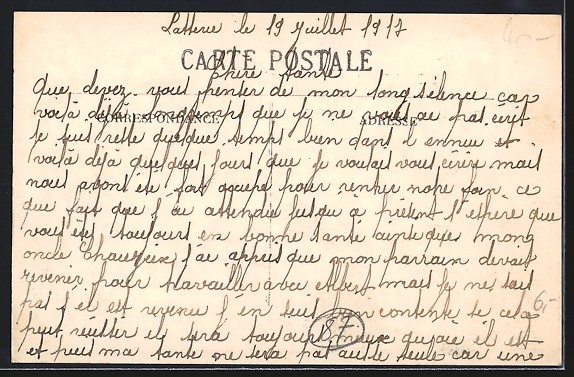 Latterie le 19 Juillet 1917
CARTE POSTALE
Chère tante
Que devez vous penser de mon long silence car
voilà déjà longtemps que je ne vous ai pas écrit
CORRESPONDANCE
ADRESSE
je suis reste quelque temps bien dans l ennui et
voilà déjà quelques jours que je voulais vous écrire mais
nous avons été fort occupé pour rentrer notre foin ce
que fait que j ai attendu jusqu à présent J espère que
vous êtes toujours en bonne santé ainsi que mong
oncle j ai appris que mon parrain devait
revenir pour travailler avec Albert mais je ne sais
pas s il est revenu j en suis bien contente si cela
peut réussir il sera toujours mieux qu où il est
et puis ma tante ne sera pas aussi seule car une
87
40,-
6,-